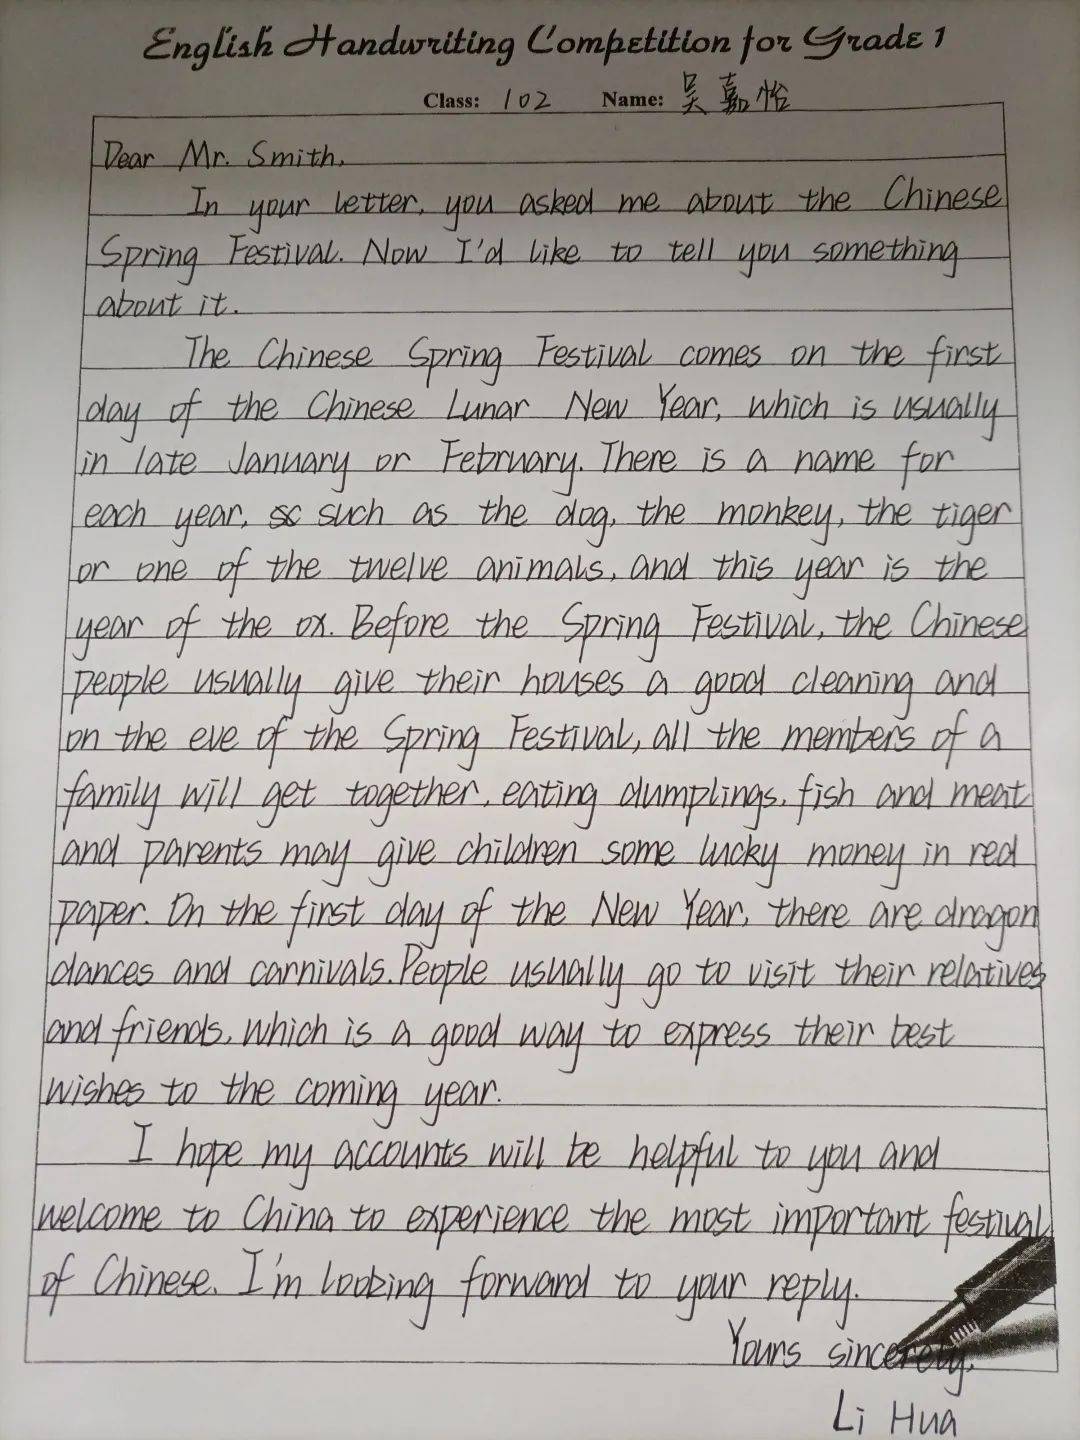 English Handwriting Competition for Grade 1
Class: 102 Name: 吴嘉怡
Dear Mr. Smith,
In your letter, you asked me about the Chinese
Spring Festival. Now I'd like to tell you something
about it.
The Chinese Spring Festival comes on the first
day of the Chinese Lunar New Year, which is usually
in late January or February. There is a name for
each year, such as the dog, the monkey, the tiger
or one of the twelve animals, and this year is the
year of the ox. Before the Spring Festival, the Chinese
people usually give their houses a good cleaning and
on the eve of the Spring Festival, all the members of a
family will get together, eating dumplings, fish and meat
and parents may give children some lucky money in red
paper. On the first day of the New Year, there are dragon
dances and carnivals. People usually go to visit their relatives
and friends, which is a good way to express their best
wishes to the coming year.
I hope my accounts will be helpful to you and
welcome to China to experience the most important festival
of Chinese. I'm looking forward to your reply.
Yours sincerely,
Li Hua